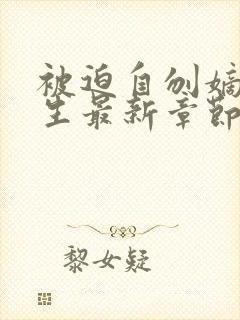 被迫自刎嫡
生最新章节
黎女疑